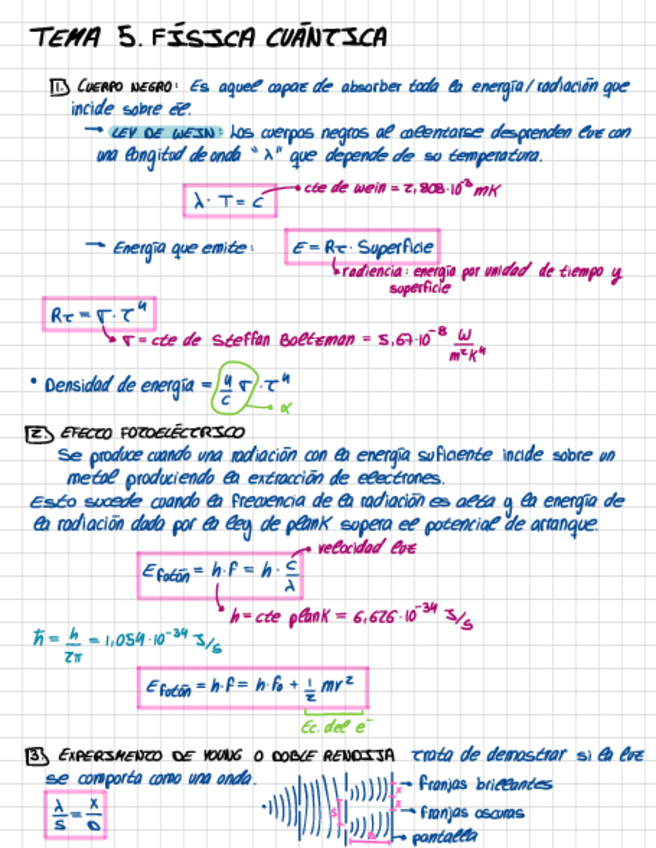 TEMA 5. FÍSICA CUÁNTICA
1. CUERPO NEGRO: Es aquel capaz de absorber toda la energía/radiación que
incide sobre él.
→ LEY DE WEIN: Los cuerpos negros al calentarse desprenden luz con
una longitud de onda "λ" que depende de su temperatura.
λ · T = C → cte de wein = 2,808·10⁻³ mK
→ Energía que emite: E = Rτ · Superficie
radiencia: energía por unidad de tiempo y
superficie
Rτ = σ · T⁴
σ = cte de Steffan Boltzman = 5,67·10⁻⁸ W/m²K⁴
• Densidad de energía = (4/c σ) · T⁴
α
2. EFECTO FOTOELÉCTRICO
Se produce cuando una radiación con la energía suficiente incide sobre un
metal produciendo la extracción de electrones.
Esto sucede cuando la frecuencia de la radiación es alta y la energía de
la radiación dada por la ley de plank supera el potencial de arranque.
velocidad luz
E fotón = h·f = h · c/λ
h = cte plank = 6,626·10⁻³⁴ J/s
ħ = h/2π = 1,054·10⁻³⁴ J/s
E fotón = h·f = h·f₀ + 1/2 mv²
Ec. del e⁻
3. EXPERIMENTO DE YOUNG O DOBLE RENDIJA trata de demostrar si la luz
se comporta como una onda.
→ franjas brillantes
λ/s = x/D
→ franjas oscuras
→ pantalla